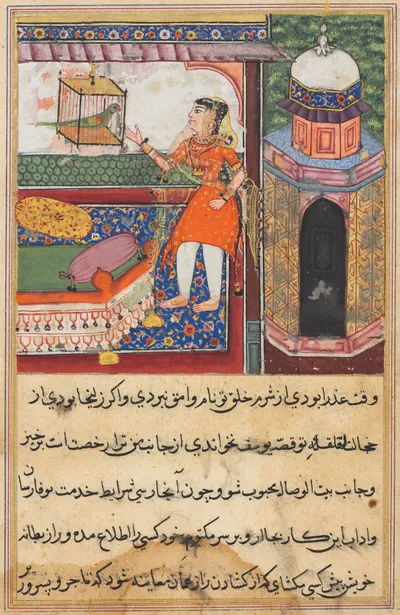 وقت عذرا بودی از شرم خلق تو نام وامق نبردی و اگر زلیخا بودی از
خجالت قلقله تو قصه یوسف نخواندی از جانب من ترا رخصت است برخیز
و جانب بیت الوصال محبوب شو و چون آنجا رسی شرایط خدمت موفا رسان
و اداب این کار بجا ار و بر سر مکتوم خود کسی را اطلاع مده و راز بطانه
خویش پیش کسی مکشای که از کشادن راز همان معاینه شود که تاجر و پسر و زیر